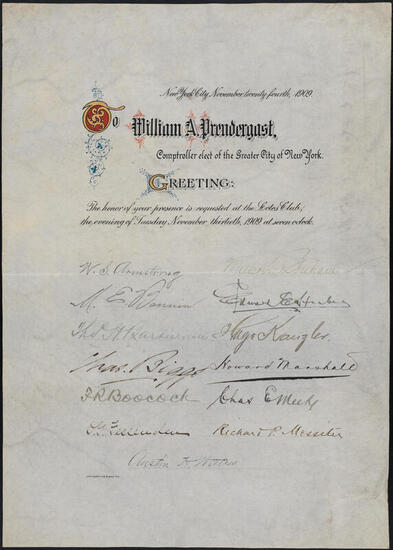 New York City November twenty fourth, 1909.
To
William A. Prendergast,
Comptroller elect of the Greater City of New York.
GREETING:
The honor of your presence is requested at the Lotos Club,
the evening of Tuesday November thirtieth, 1909 at seven oclock.
W. S. Armstrong
M. E. Bannin
Hugo Kanzler.
Chas. Biggs Howard Marshall
F R Boocock Chas E Meek
Richard P. Messiter
Austin